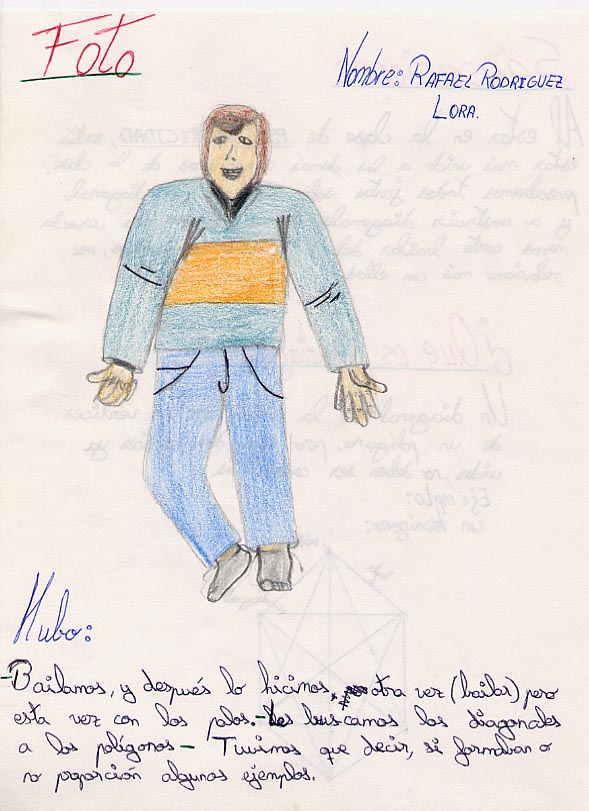 Foto
Nombre: RAFAEL RODRIGUEZ
LORA.
Hubo:
-Bailamos, y después lo hicimos, otra vez (bailar) pero
esta vez con los palos.-Les buscamos las diagonales
a los polígonos - Tuvimos que decir, si formaban o
no proporción algunos ejemplos.